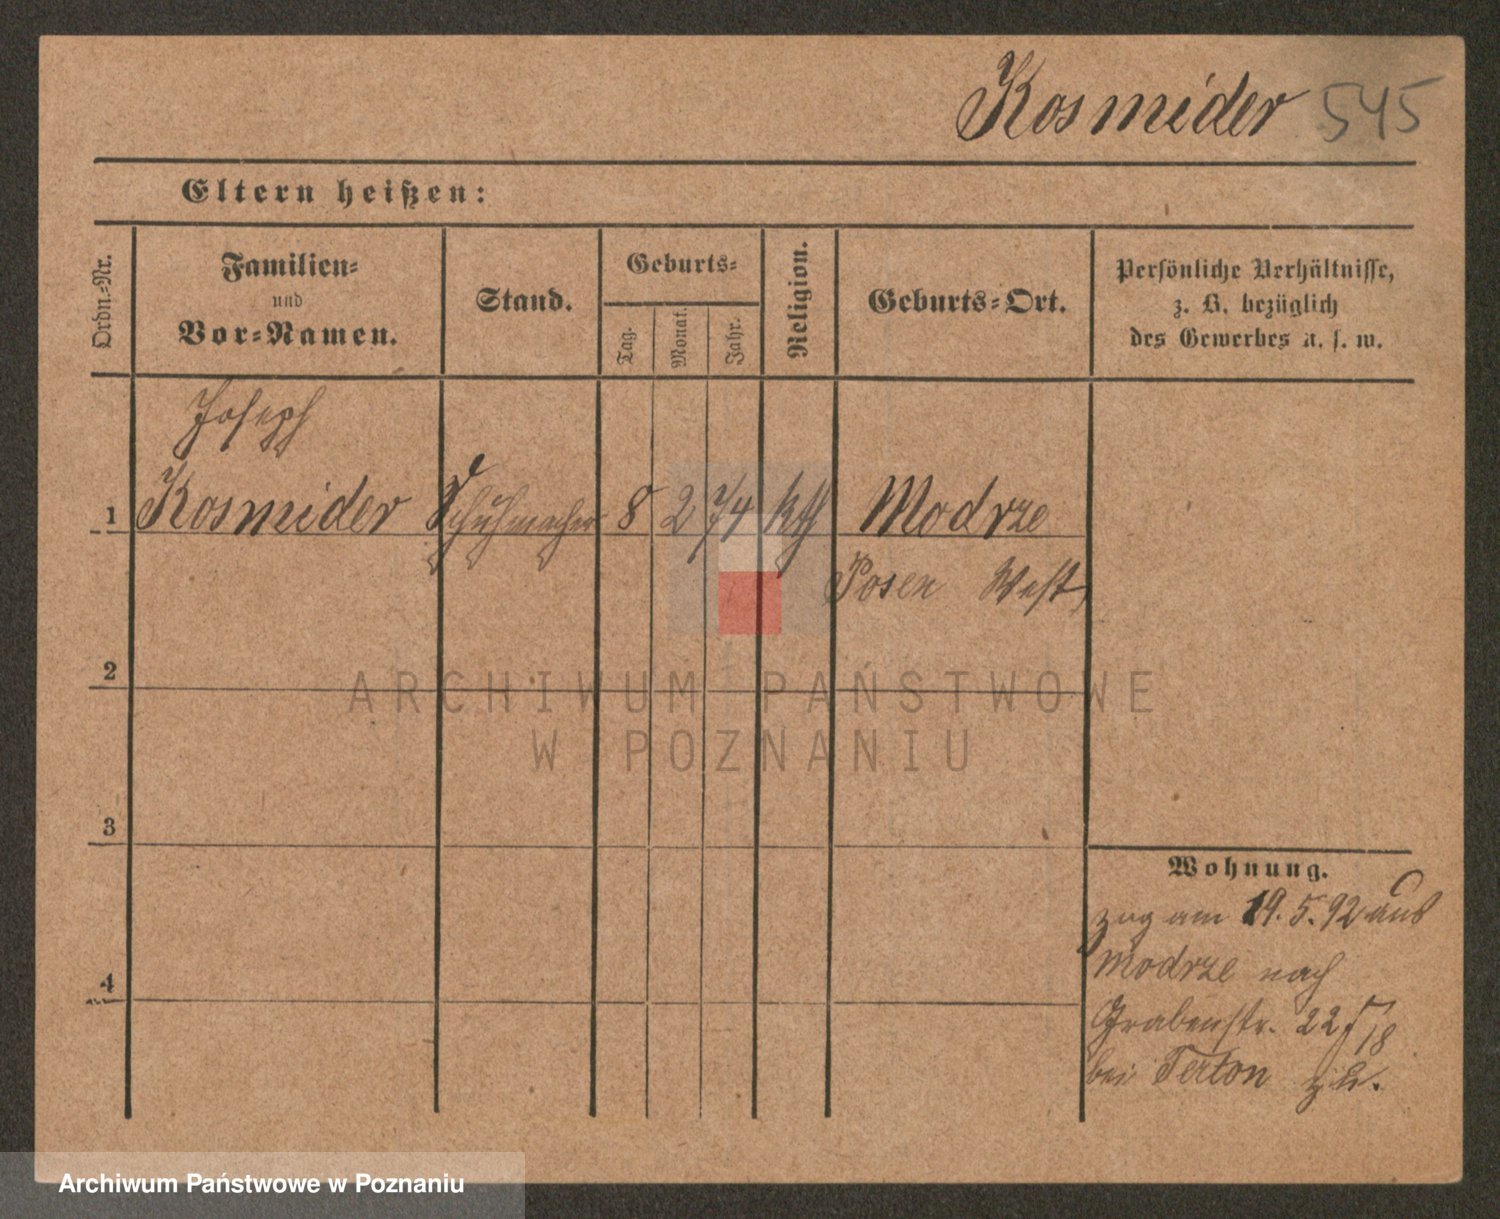 Kosmider 545
Eltern heißen:
Ordn.-Nr.
Familien-
und
Vor-Namen.
Stand.
Geburts-
Tag.
Monat.
Jahr.
Religion.
Geburts-Ort.
Persönliche Verhältnisse,
z. B. bezüglich
des Gewerbes u. s. w.
Joseph
1 Kosmider Schuhmacher 8 2 74 kth Modrze
Posen West
2
ARCHIWUM PAŃSTWOWE
W POZNANIU
3
Wohnung.
zog am 19. 5. 92 aus
Modrze nach
4
Grabenstr. 22
bei Terton
Archiwum Państwowe w Poznaniu